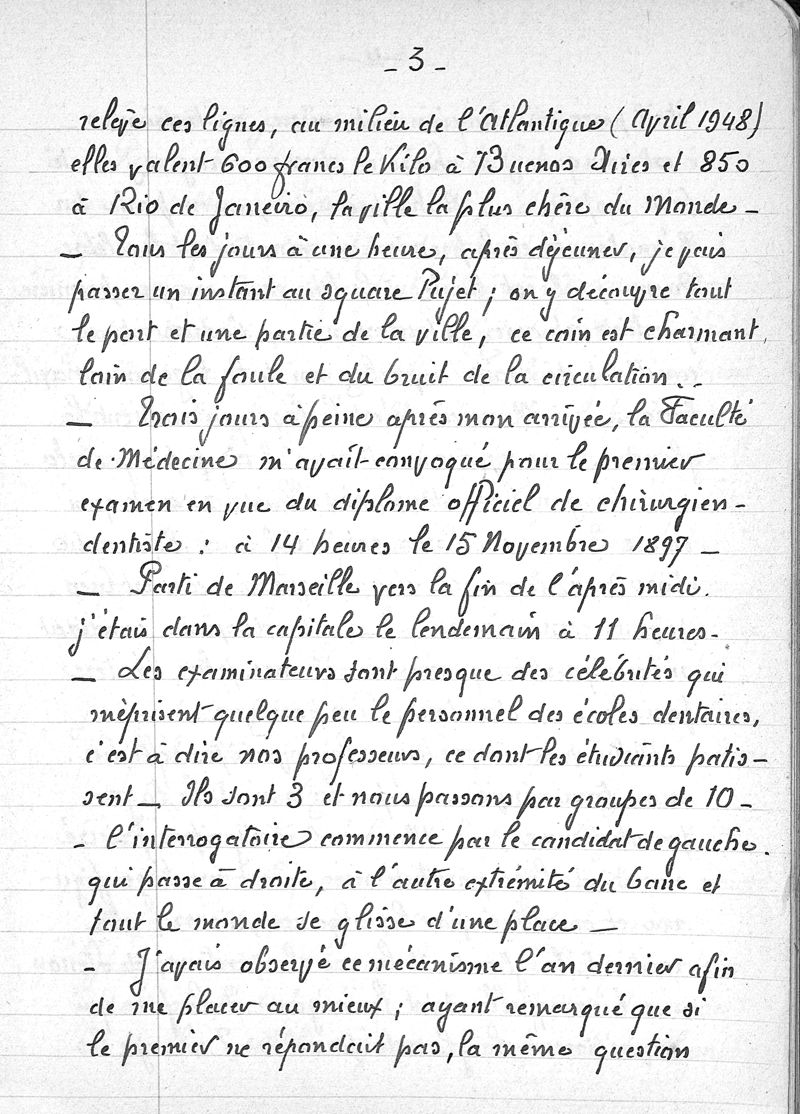 - 3 -
relève ces lignes, au milieu de l'Atlantique (Avril 1948)
elles valent 600 francs le Kilo à Buenos Aires et 850
à Rio de Janeiro, la ville la plus chère du Monde -
- Tous les jours à une heure, après déjeuner, je vais
passer un instant au square Pujet ; on y découvre tout
le port et une partie de la ville, ce coin est charmant,
loin de la foule et du bruit de la circulation..
- Trois jours à peine après mon arrivée, la Faculté
de Médecine m'avait convoqué pour le premier
examen en vue du diplome officiel de chirurgien-
dentiste : à 14 heures le 15 Novembre 1897 -
- Parti de Marseille vers la fin de l'après midi.
j'étais dans la capitale le lendemain à 11 heures-
- Les examinateurs sont presque des célébrités qui
méprisent quelque peu le personnel des écoles dentaires,
c'est à dire nos professeurs, ce dont les étudiants patis-
sent - Ils sont 3 et nous passons par groupes de 10 -
- l'interrogatoire commence par le candidat de gauche.
qui passe à droite, à l'autre extrémité du banc et
tout le monde se glisse d'une place -
- J'avais observé ce mécanisme l'an dernier afin
de me placer au mieux ; ayant remarqué que si
le premier ne répondait pas, la même question